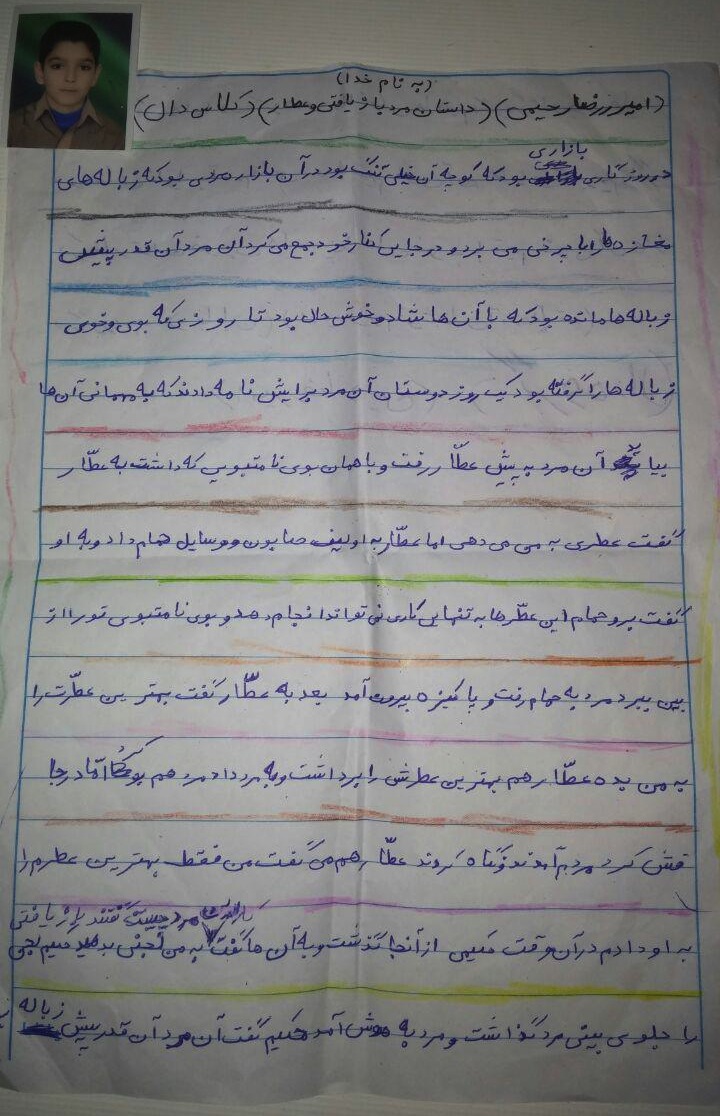 (به نام خدا)
(امیررضا رحیمی) (داستان مرد بازیافتی و عطار) (کلاس دال)
در روزگاری بازاری بود که کوچه آن خیلی تنگ بود در آن بازار مردی بود که زباله های
مغازه ها را با چرخی می برد و در جایی کنار خود جمع می کرد آن مرد آن قدر پیش
زباله ها مانده بود که با آن ها شاد و خوش حال بود تا روزی که بوی و خوی
زباله ها را گرفته بود یک روز دوستان آن مرد برایش نامه دادند که به مهمانی آن ها
بیاید آن مرد به پیش عطّار رفت و با همان بوی نامتبوبی که داشت به عطّار
گفت عطری به من می دهی اما عطّار به او لیف صابون و وسایل همام داد و به او
گفت برو حمام این عطّرها به تنهایی کاری نمی تواند انجام دهد و بوی نامتبوبی تو را از
بین ببرد مرد به حمام رفت و پاکیزه بیرون آمد بعد به عطّار گفت بهترین عطّرت را
به من بده عطّار هم بهترین عطرش را برداشت و به مرد داد مرد هم بو کرد اما در جا
قش کرد مردم آمدند و نگاه کردند عطّار هم می گفت من فقط بهترین عطرم را
کار این مرد چیست گفتند بازیافتی
به او دادم در آن وقت حکیمی از آنجا گذشت و به آن ها گفت به من جنس بدهید حکیم
را جلوی بینی مرد گذاشت و مرد به هوش آمد حکیم گفت آن مرد آن قدر پیش زباله